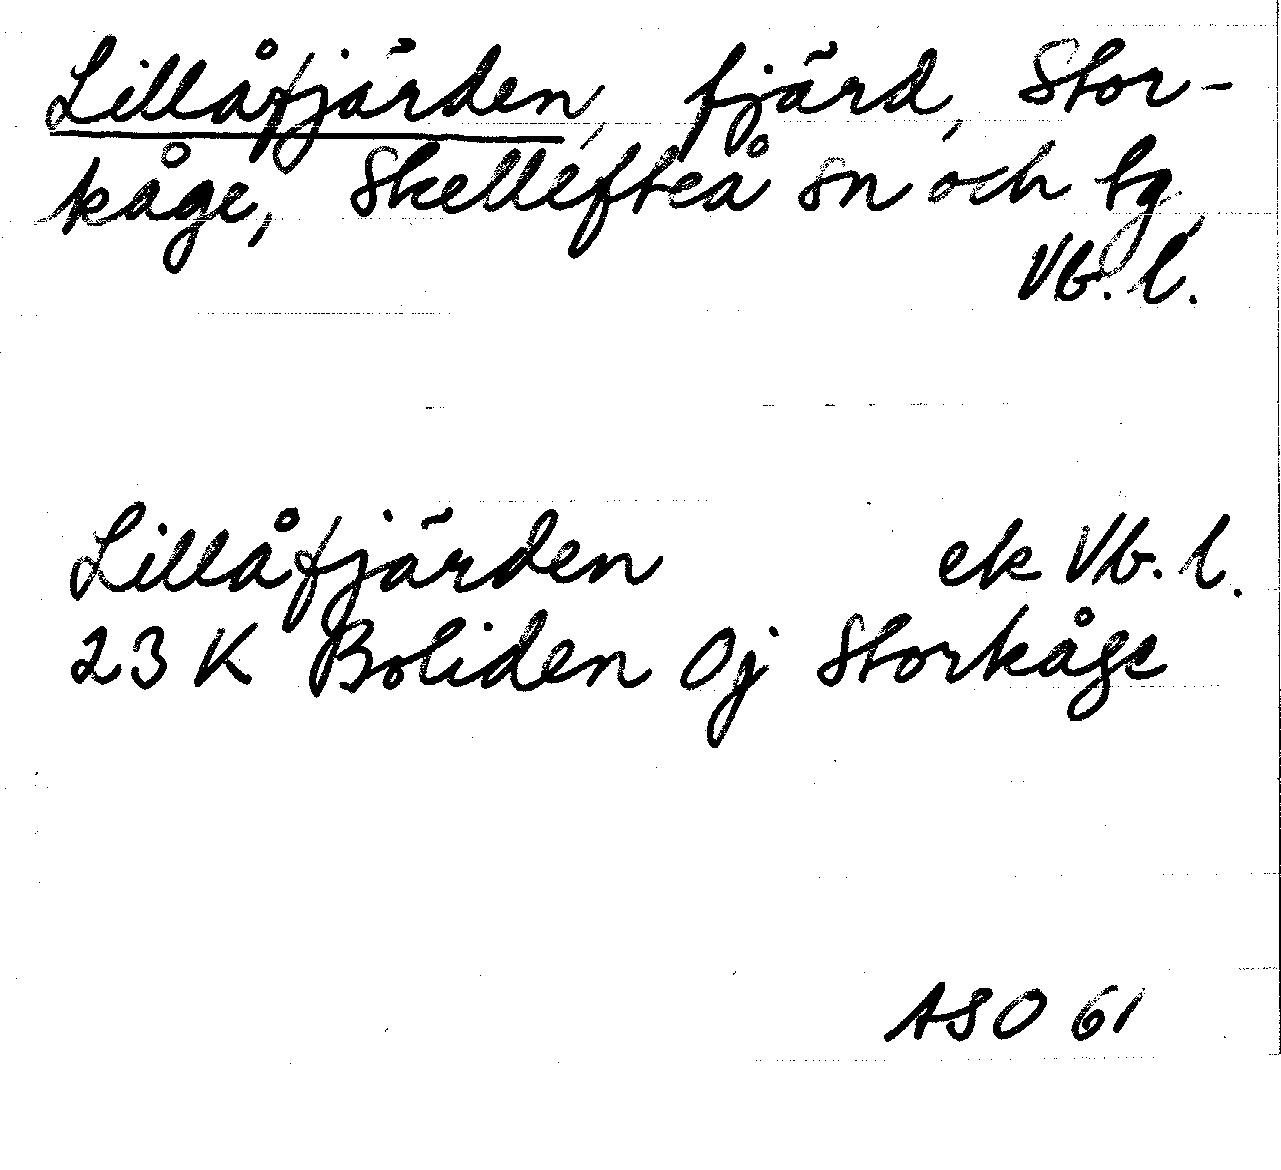 Lillåfjärden, fjärd, Stor-
kåge, Skellefteå sn och tg,
Vb. l.
Lillåfjärden ek Vb. l.
23 K Boliden Oj Storkåge
ASO 61